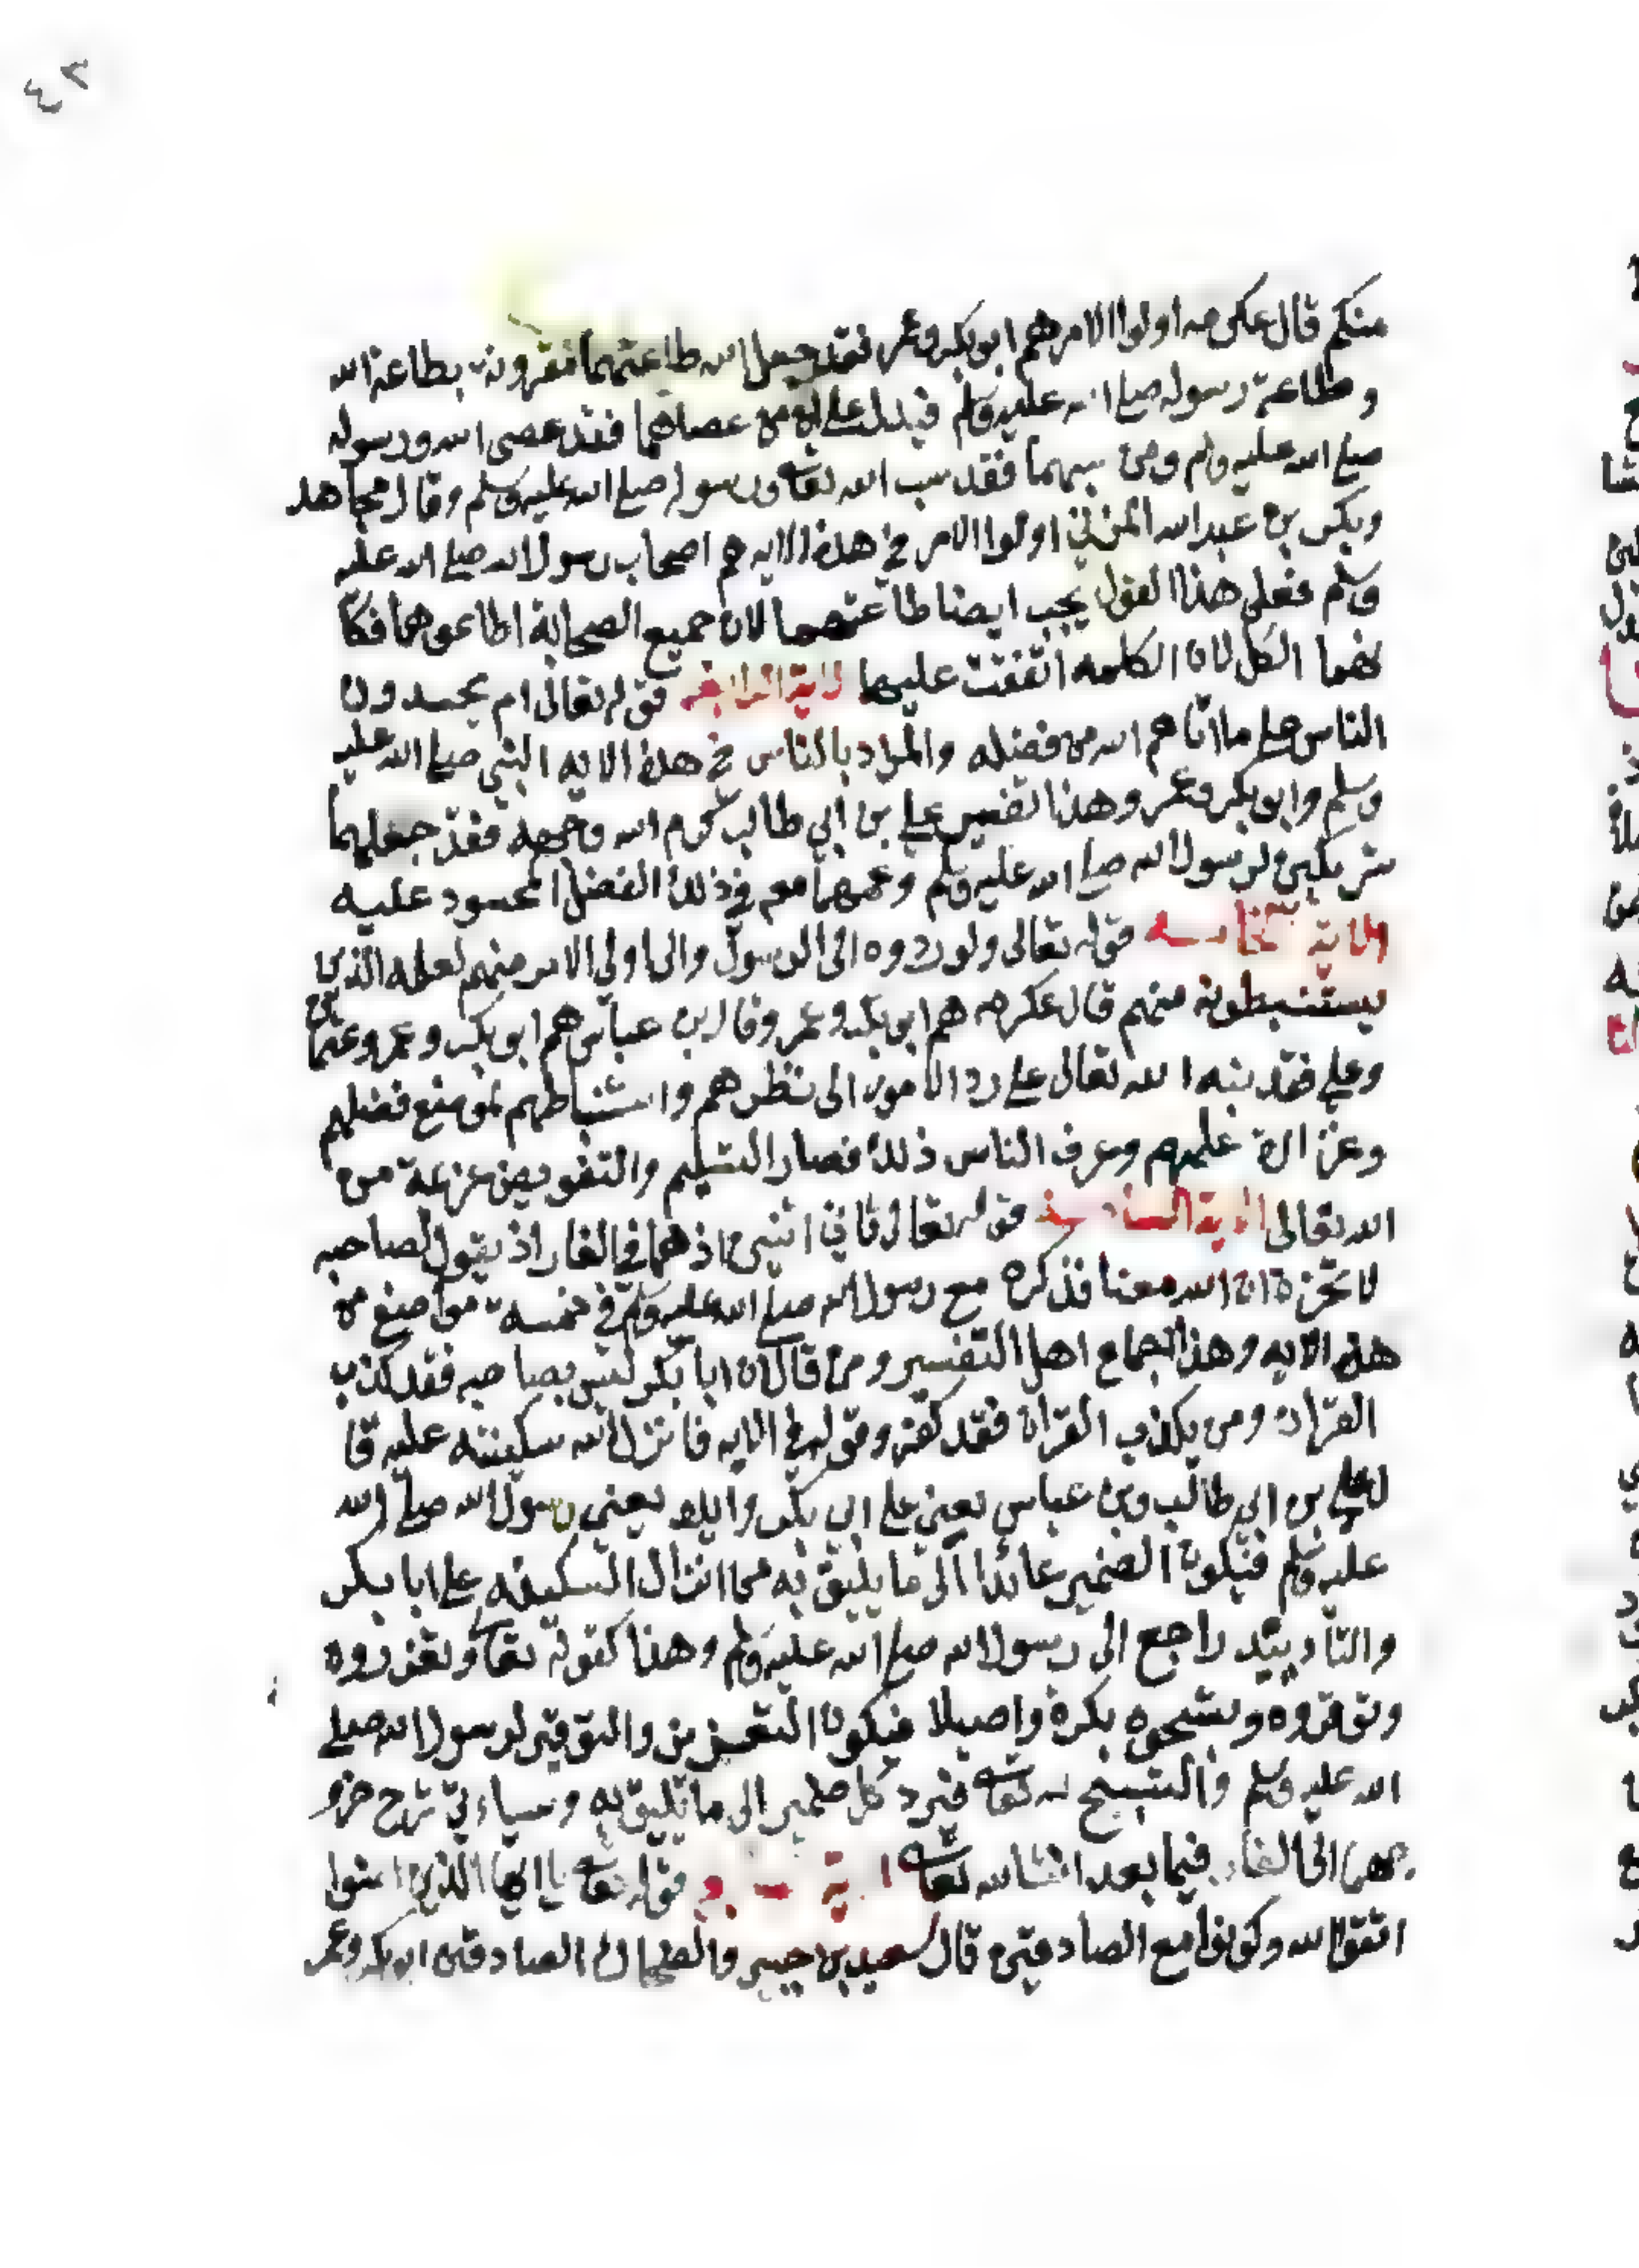 ٤٢
منكم قال عكرمه اولوا الامر هم ابو بكر وعمر فقد جعل الله طاعتهما مقرونة بطاعة الله
وطاعة رسوله صلى الله عليه وسلم فيدل على ان من عصاهما فقد عصى الله ورسوله
صلى الله عليه وسلم ومن سبهما فقد سب الله تعالى ورسوله صلى الله عليه وسلم وقال مجاهد
وبكر بن عبد الله المزني اولوا الامر في هذه الايه هم اصحاب رسول الله صلى الله عليه
وسلم فعلى هذا القول يجب ايضا طاعتهما لان جميع الصحابة اطاعوهما فكا
نهما الكل لان الكلمه اتفقت عليهما الاية الرابعة قوله تعالى ام يحسدون
الناس على ما اتاهم الله من فضله والمراد بالناس في هذه الايه النبي صلى الله عليه
وسلم وابو بكر وعمر وهذا تفسير علي بن ابي طالب كرم الله وجهه فقد جعلهما
شريكين لرسول الله صلى الله عليه وسلم وعمهما معه في ذلك الفضل المحسود عليه
الاية الخامسه قوله تعالى ولو ردوه الى الرسول والى اولي الامر منهم لعلمه الذين
يستنبطونه منهم قال عكرمه هم ابو بكر وعمر وقال بن عباس هم ابو بكر وعمر وعثمان
وعلي فقد نبه الله تعالى على رد الامور الى نظرهم واستنباطهم لموضع فضلهم
وغزارة علمهم وعرف الناس ذلك فصار التسليم والتفويض عزيمة من
الله تعالى الاية السادسة قوله تعالى ثاني اثنين اذ هما في الغار اذ يقول لصاحبه
لا تحزن ان الله معنا فذكره مع رسول الله صلى الله عليه وسلم في خمسة مواضع من
هذه الايه وهذا اجماع اهل التفسير ومن قال ان ابا بكر ليس بصاحبه فقد كذب
القران ومن يكذب القران فقد كفر وقوله في الايه فانزل الله سكينته عليه قا
ل علي بن ابي طالب وبن عباس يعني على ابي بكر وايده يعني رسول الله صلى الله
عليه وسلم فيكون الضمير عائدا الى ما يليق به من انزال السكينه على ابا بكر
والتاييد راجع الى رسول الله صلى الله عليه وسلم وهذا كقوله تعالى وتعزروه
وتوقروه وتسبحوه بكرة واصيلا فيكون التعزير والتوقير لرسول الله صلى
الله عليه وسلم والتسبيح لله تعالى فيرد كل ضمير الى ما يليق به وسياءتي شرح خرو
جهما الى الغار فيما بعد انشا الله تعالى قوله تعالى يا ايها الذين امنوا
اتقوا الله وكونوا مع الصادقين قال سعيد بن جبير والضحاك الصادقين ابو بكر وعمر